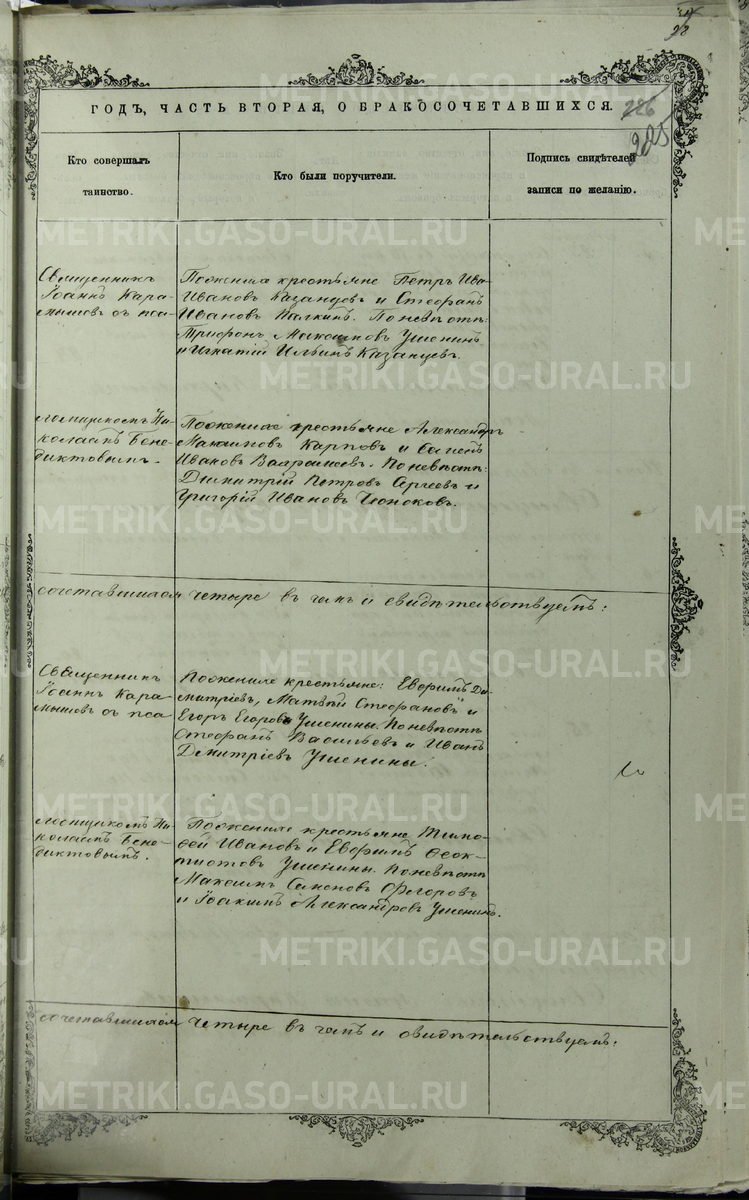 28
ГОДЪ, ЧАСТЬ ВТОРАЯ, О БРАКОСОЧЕТАВШИХСЯ.
226
225
Кто совершалъ
таинство.
Кто были поручители.
Подпись свидѣтелей
записи по желанію.
Священникъ
Іоаннъ Кара-
мышовъ съ пса-
Поженихѣ крестьяне Петръ Ива
Ивановъ Казанцовъ и Стефанъ
Ивановъ Палкинъ. Поневѣстѣ:
Трифонъ Максимовъ Ушенинъ
и Игнатій Ильинъ Казанцевъ.
ломщикомъ Ни-
колаемъ Бене-
диктовымъ.
Поженихѣ крестьяне Александръ
Максимовъ Карповъ и
Ивановъ Поневѣстѣ:
Димитрій Петровъ Сергѣевъ и
Григорій Ивановъ
сочетавшихся четыре въ чемъ и свидѣтельствуемъ:
Священникъ
Іоаннъ Кара
мышовъ съ пса
Поженихѣ крестьяне: Евфимъ Ди-
митріевъ, Матвѣй Стефановъ и
Егоръ Егоровъ Ушенины. Поневѣстѣ
Стефанъ Васильевъ и Иванъ
Димитріевъ Ушенины.
ломщикомъ Ни-
колаемъ Бене-
диктовымъ.
Поженихѣ крестьяне Тимо-
фей Ивановъ и Евфимъ Ѳеок-
тистовъ Ушенины. Поневѣстѣ
Максимъ Семеновъ Ѳедоровъ
и Іоакимъ Александровъ Ушенинъ.
сочетавшихся четыре въ чемъ и свидѣтельствуемъ:
METRIKI.GASO-URAL.RU